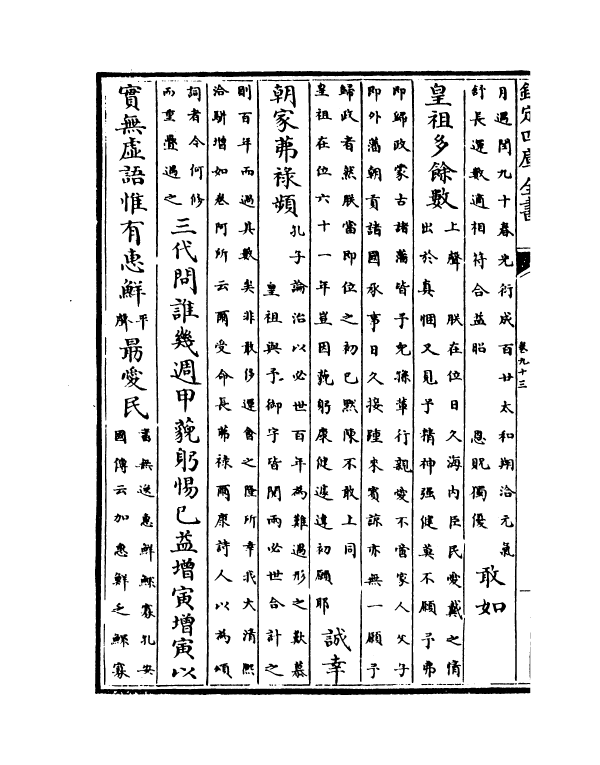 欽定四庫全書
卷九十三
月遇閏九十春光衍成百廿太和翔洽元氣
舒長運數適相符合益昭 恩貺獨優
敢如
皇祖多餘數
上聲 朕在位日久海内臣民愛戴之情
出於真悃又見予精神强健莫不願予弗
即歸政蒙古諸藩皆予兒孫輩行親愛不啻家人父子
即外藩朝貢諸國承事日久接踵來賓諒亦無一願予
歸政者然朕當即位之初已黙陳不敢上同
皇祖在位六十一年豈因藐躬康健遽違初願耶
誠幸
朝家茀祿頻
孔子論治以必世百年為難遇形之歎慕
皇祖與予御宇皆閱兩必世合計之
則百年而過其數矣非敢侈運會之隆所幸我大清熙
洽駢增如卷阿所云爾受命長茀祿爾康詩人以為頌
詞者今何修
而重疊遇之
三代問誰幾週甲藐躬惕已益增寅增寅以
實無虛語惟有惠鮮
平
聲
最愛民
書無逸惠鮮鰥寡孔安
國傳云加惠鮮乏鰥寡